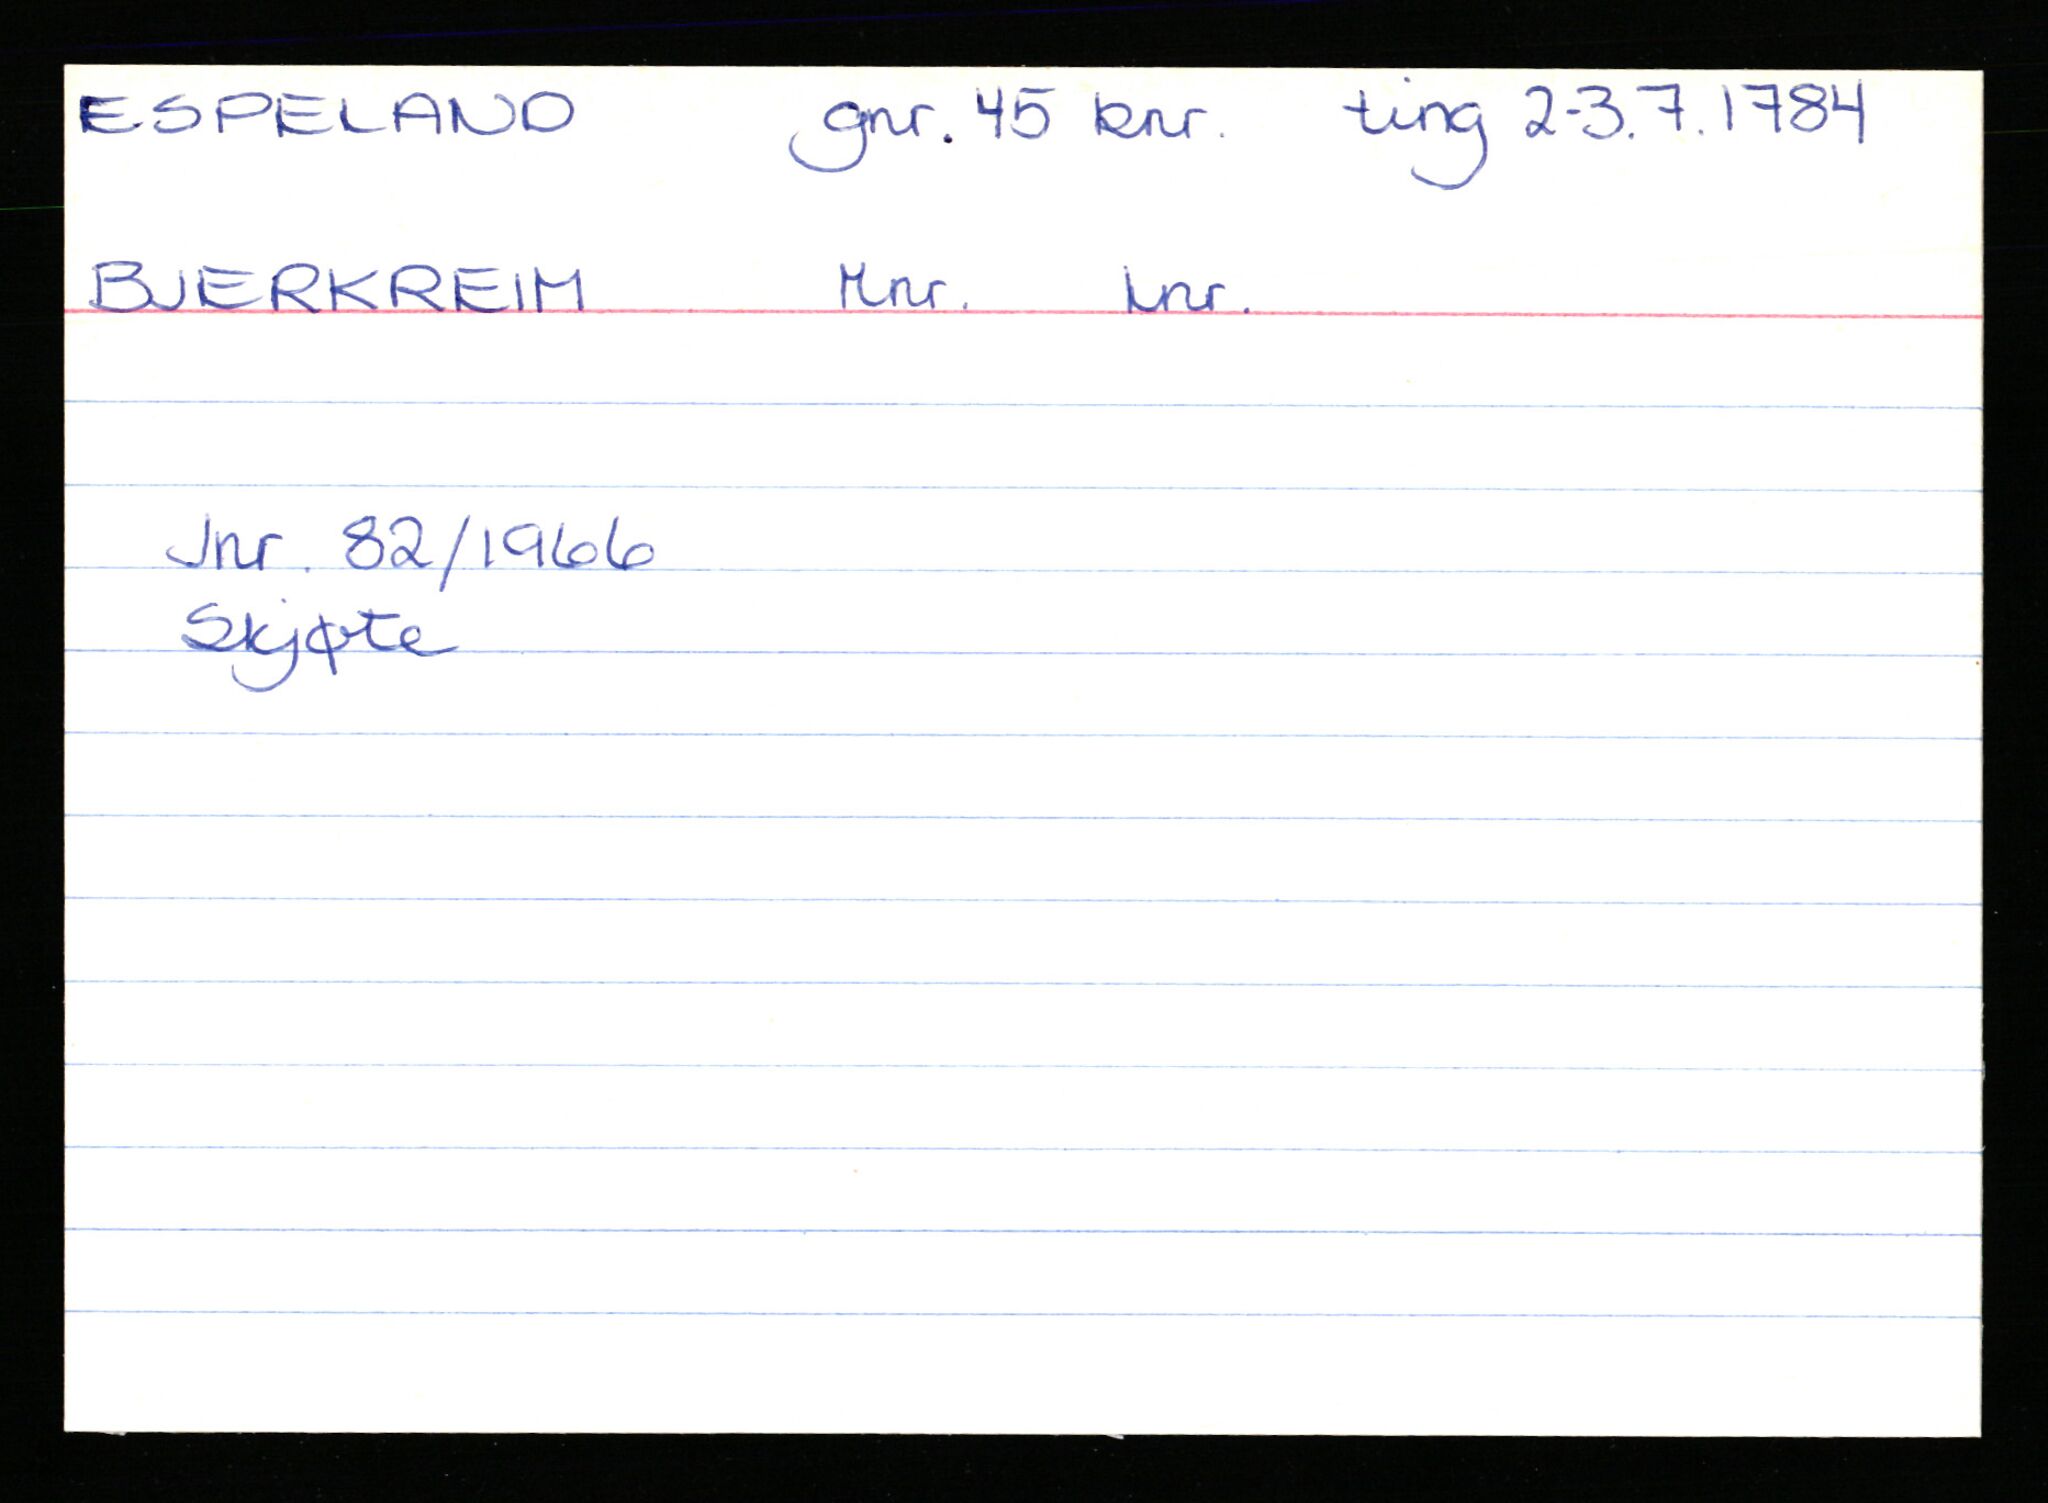 ESPELAND gnr. 45 bnr. ting 2-3.7.1784
BJERKREIM Mnr. lnr.
Jnr. 82/1966
Skjøte